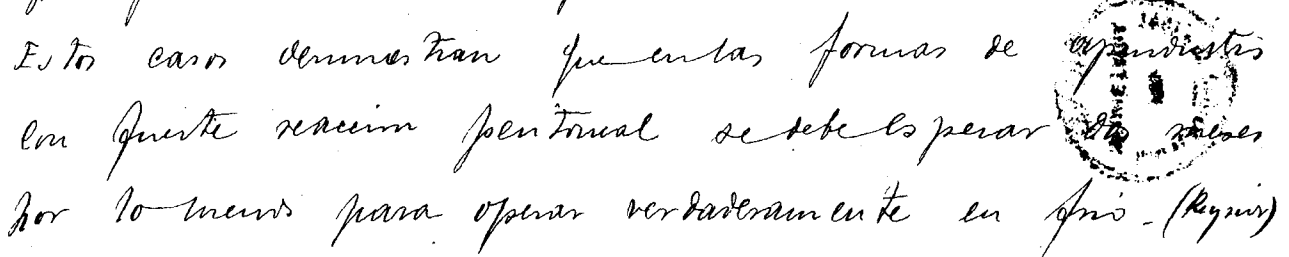 Estos casos demuestran que en las formas de apendicitis
con fuerte reaccion peritoneal se debe esperar dos meses
por lo menos para operar verdaderamente en frio - (Reynier)